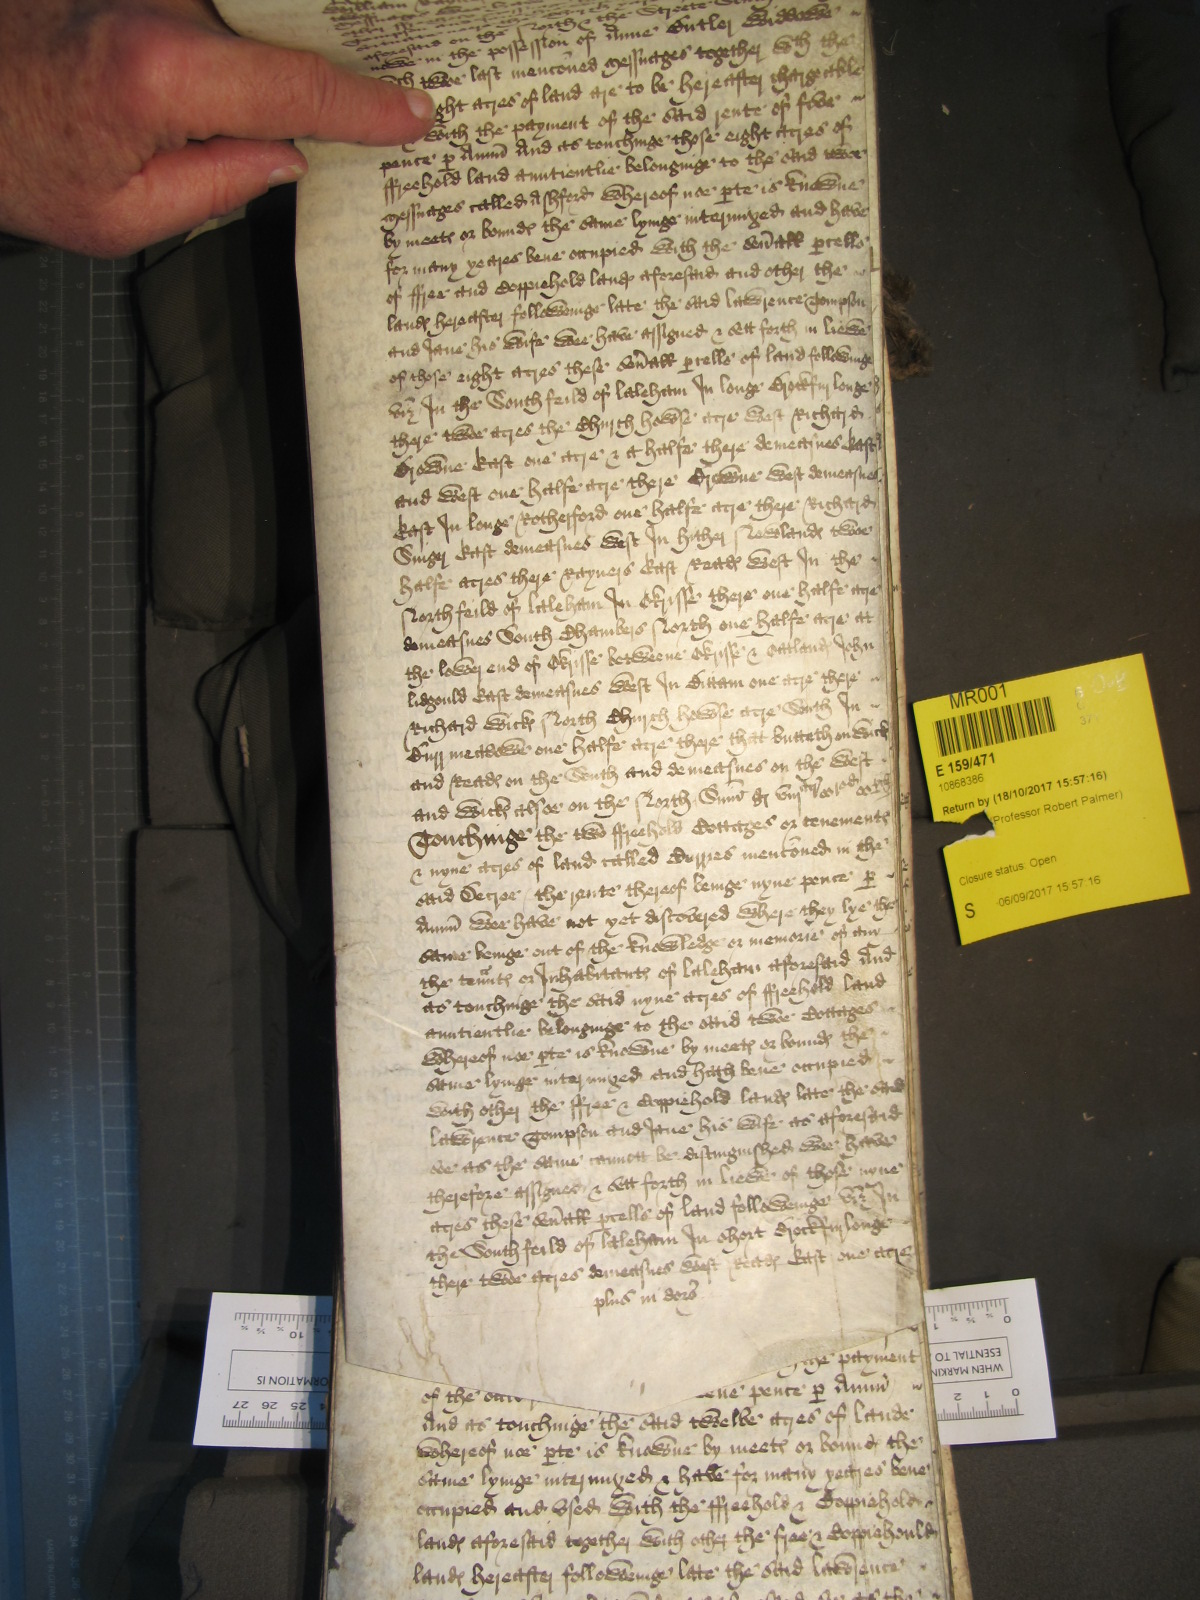 aforesaid on the North & the Streete
nowe in the possession of Anne Butler Widdowe
twoe last mentoned messuages together wth the
ght acres of land are to be hereafter chargeable
with the payment of the said rente of fowe
pence p Annu And as touchinge those eight acres of
ffreehold land auntientlie belonginge to the said twoe
messuages called Ashford whereof noe pte is knowne
by meets or bounds the same lyinge intermixed and have
for many yeares bene occupied with the sevall pcells
of ffree and Coppiehold lands aforesaid and other the
lands hereafter followeinge late the said Lawrence Tompson
and Jane his wife wee have assigned & sett forth in liewe
of those eight acres these sevall pcells of land followinge
vizt In the Southfeild of Laleham In longe Crockfurlonge
there twoe acres the Church howse acre west Richard
Browne East one acre & a halfe there demeasnes East
and west one halfe acre there Browne west demeasnes
East In longe Rotherford one halfe acre there Richard
Singer East demeasnes west In hither Nowlands twoe
halfe acres there Rayners East Reads west In the
Northfeild of Laleham In Okrisse there one halfe acre
demeasnes South Chambers North one halfe acre at
the lower end of Okrisse betweene Okrisse & Oatlands John
Lidgould East demeasnes west In Dittam one acre there
Richard Wicks North Church howse acre South In
meadowe one halfe acre there that butteth on Wicks
and Reads on the South and demeasnes on the west
and Wicks alsoe on the North
Touchinge the two ffreehold Cottages or tenements
& nyne acres of land called mentoned in the
said Decree the rente thereof beinge nyne pence p
Annu wee have not yet discovered where they lye the
same beinge out of the knowledge or memorie of any
the tennts or Inhabitants of Laleham aforesaid And
as touchinge the said nyne acres of ffreehold land
auntientlie belonginge to the said twoe Cottages
whereof noe pte is knowne by meets or bounds the
same lyinge intermixed and hath bene occupied
with other the ffree & Coppiehold lands late the said
Lawrence Tompson and Jane his wife as aforesaid
soe as the same cannott be distinguished wee have
therefore assigned & sett forth in liewe of those nyne
acres these sevall pcells of land followeinge vizt In
the Southfeild of Laleham In short Crockfurlonge
there twoe acres demeasnes west Reads East one acre
plus in dors
the payment
of the pence p Annu
And as touchinge the said twelve acres of lande
whereof noe pte is knowne by meets or bounds the
same lyinge intermixed & have for many yeares bene
occupied and used with the ffreehold & Coppiehold
lands aforesaid together with other the free & Coppiehould
lands hereafter followeinge late the said Lawrence
MR001
E 159/471
10868386
Return by (18/10/2017 15:57:16)
(Professor Robert Palmer)
Closure status: Open
S 06/09/2017 15:57:16
WHEN MARKIN
ESENTIAL TO
ORMATION IS
27 26 25
10
0 1 2